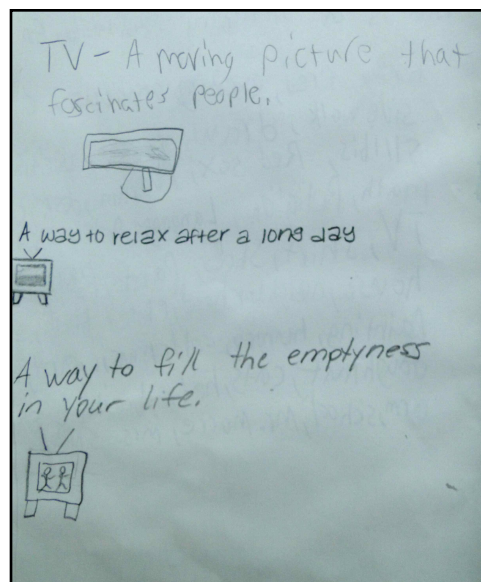 TV - A moving picture that
fascinates people.
A way to relax after a long day
A way to fill the emptyness
in your life.